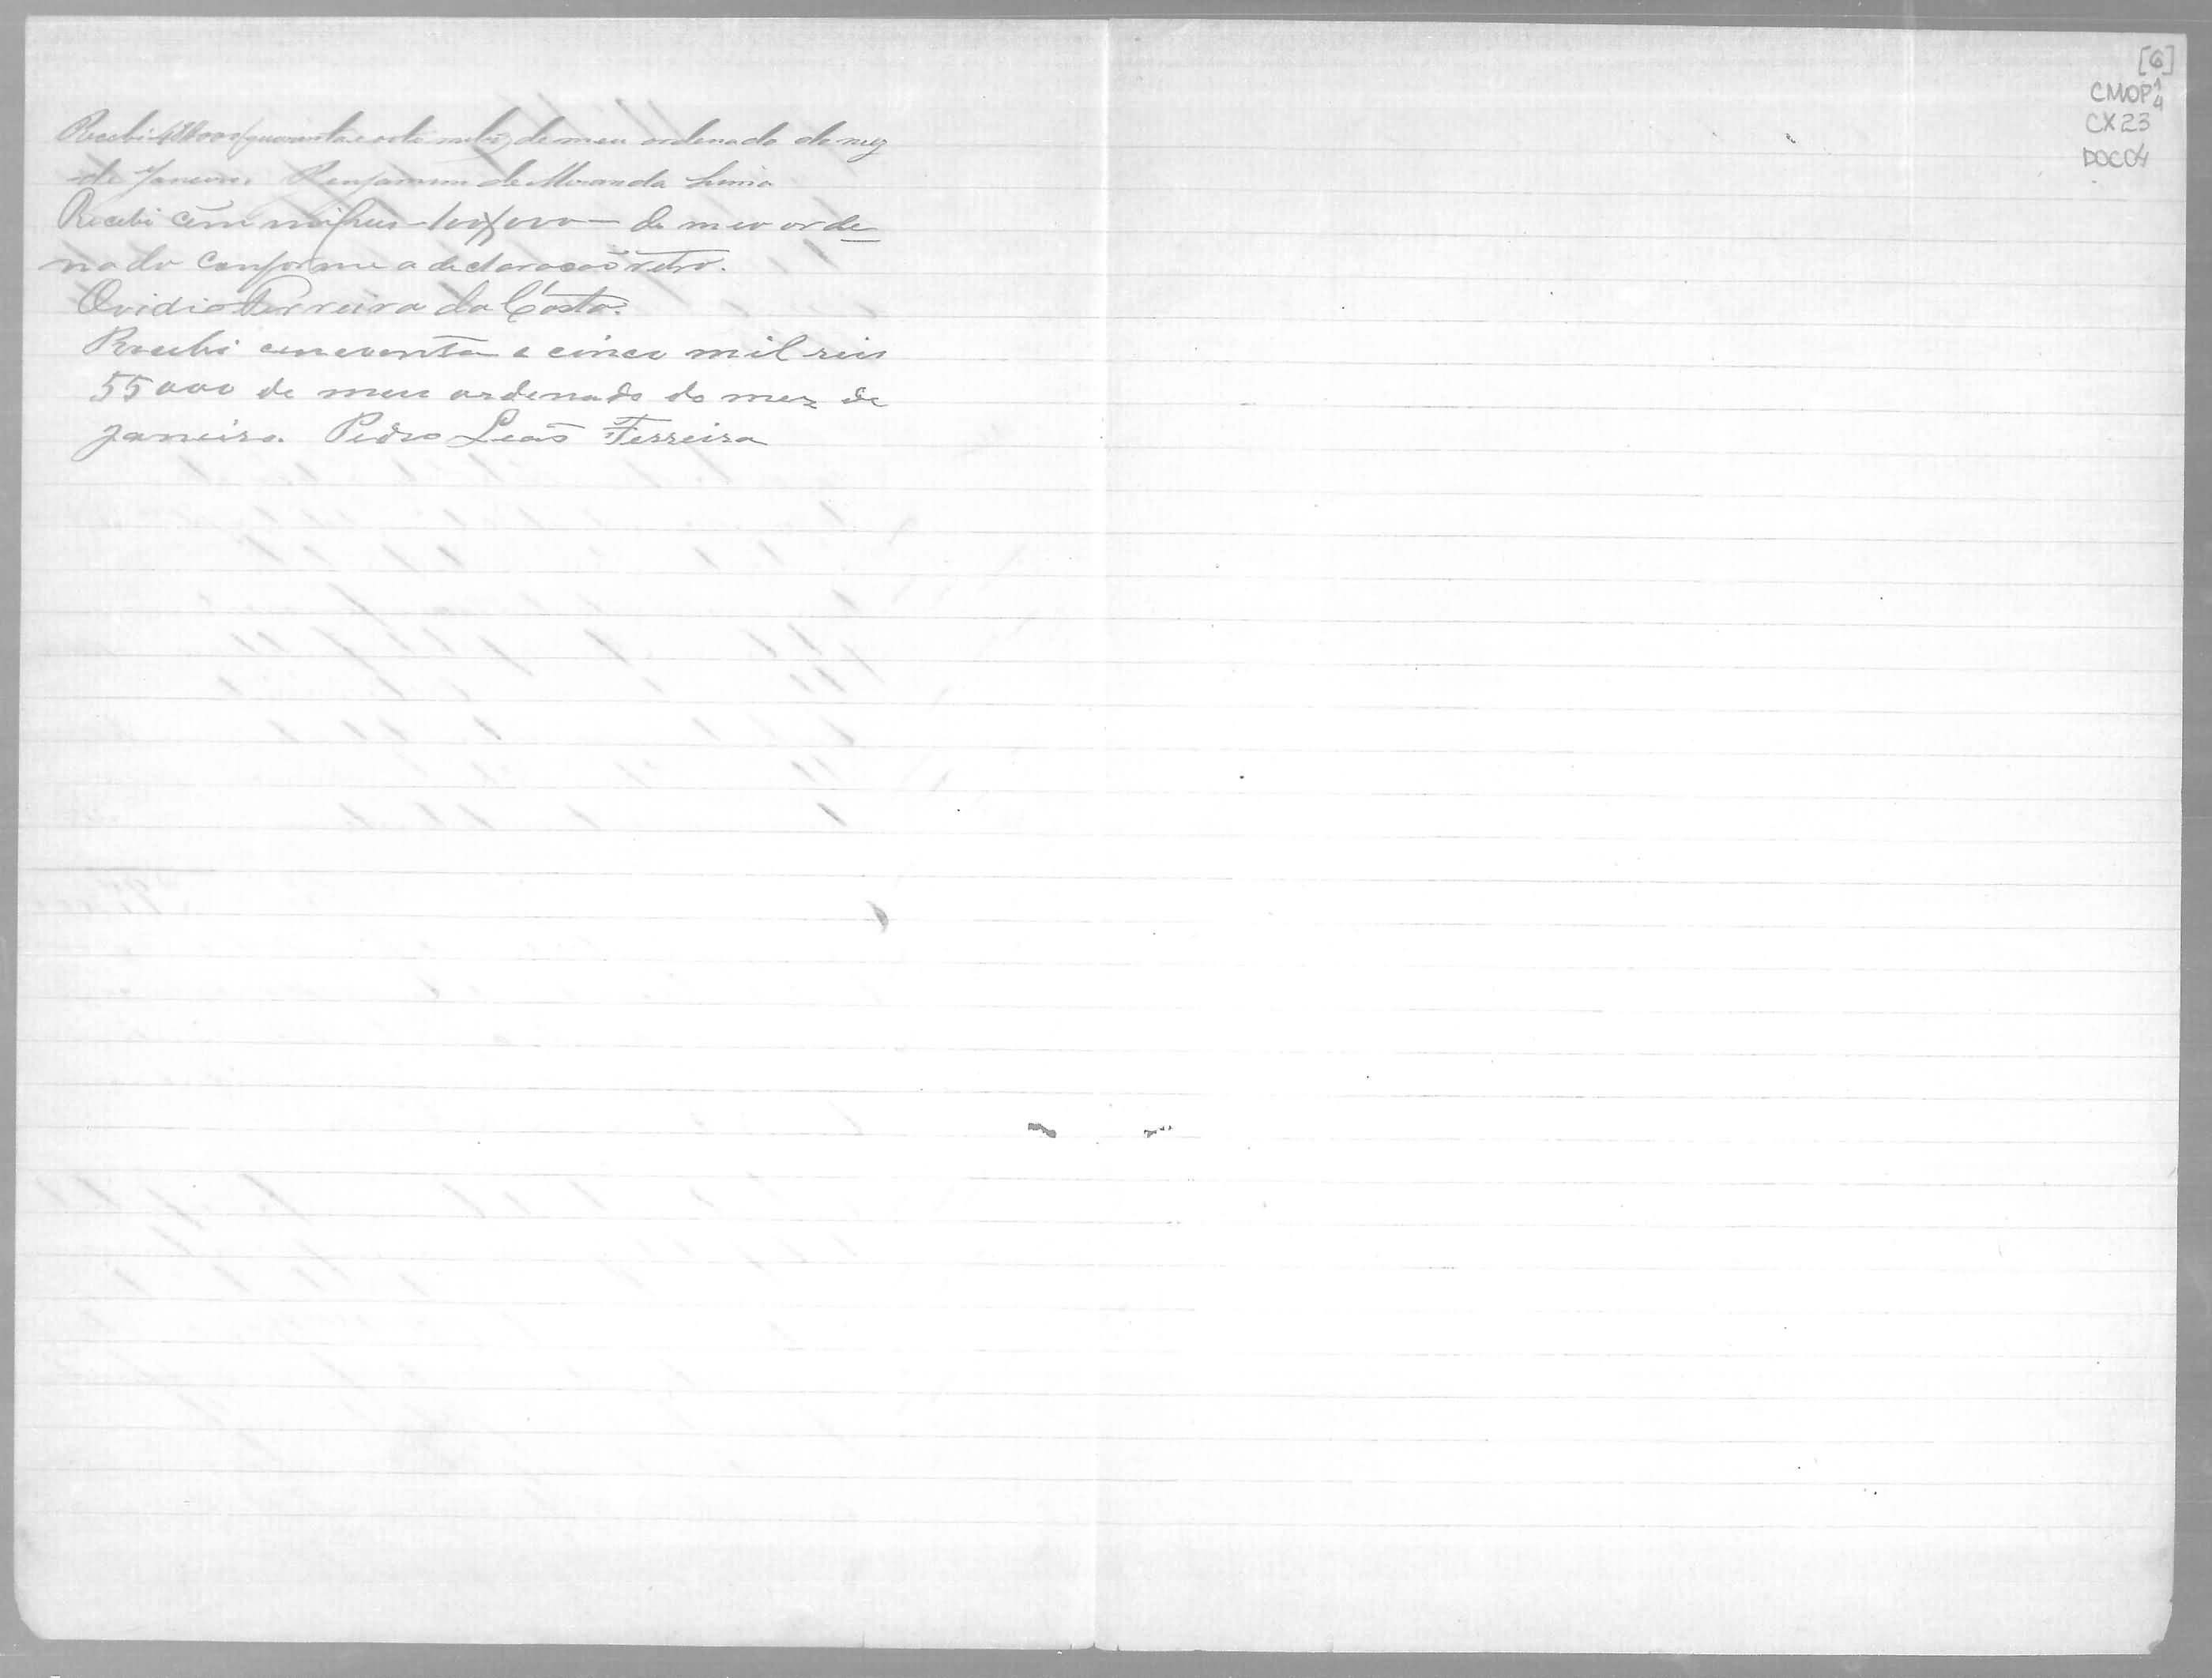 Recebi 48000 (quarenta e oito mil rs) de meu ordenado do mez
de Janeiro. Benjamim de Miranda Lima
Recebi cem mil reis - 100$000 - de meo orde
nado conforme a declaracaõ retro.
Ovidio Ferreira da Costa.
Recebi cincoenta e cinco mil reis
55000 de meu ordenado do mez de
janeiro. Pedro Leaõ Ferreira
[6]
CMOP 1/4
CX 23
DOC 04